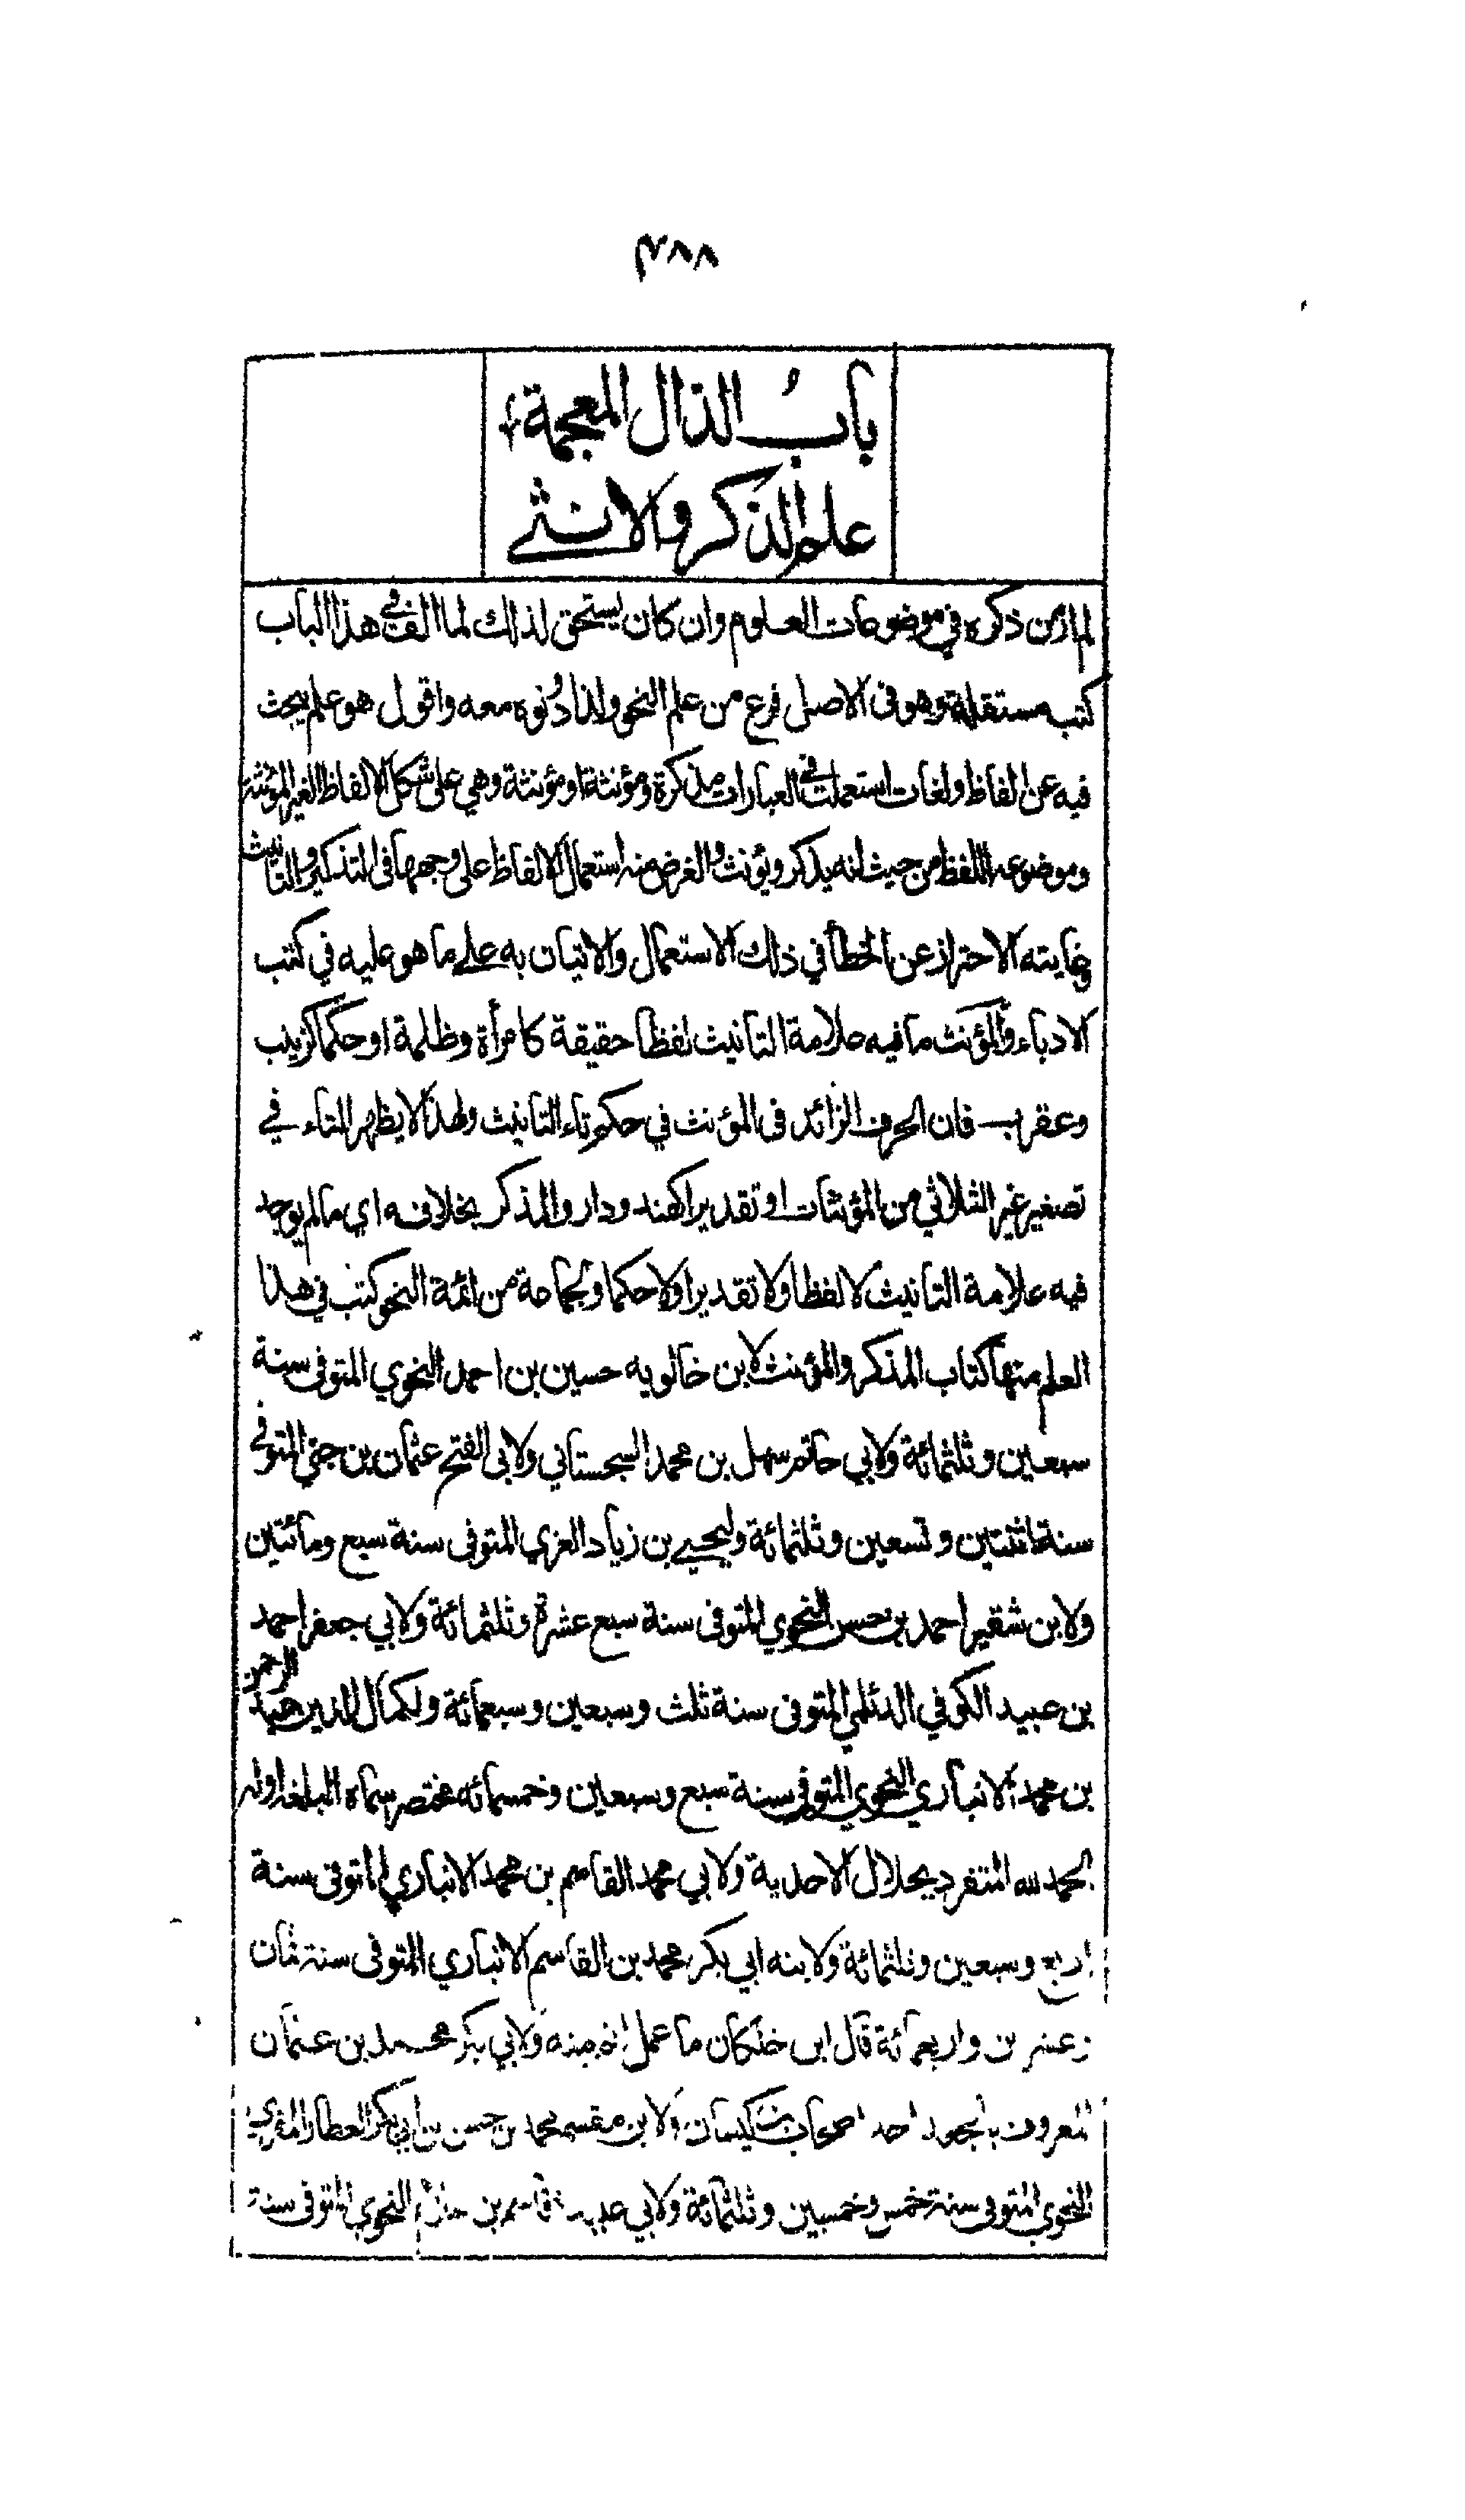 ٤٨٨
باب الذال المعجمة
علم الذكر والانثے
لم ار من ذكره في موضوعات العلوم وان كان يستحق لذلك لما الف في هذا الباب
كتب مستقلة وهو في الاصل فرع من علم النحو ولذا دونوه معه واقول هو علم يبحث
فيه عن الفاظ ولغات استعملت في العبارات مذكرة ومؤنثة او مؤنثة وهي على شكل الالفاظ الغير المؤنثة
وموضوعه اللفظ من حيث انه يذكر ويؤنث والغرض منه استعمال الالفاظ على وجهها في التذكير والتانيث
وغايته الاحتراز عن الخطأ في ذلك الاستعمال والاتيان به علے ما هو عليه في كتب
الادباء والمؤنث ما فيه علامة التانيث لفظا حقيقة كامرأة وظلمة او حكما كزينب
وعقرب فان الحرف الزائد في المؤنث في حكم تاء التانيث ولهذا لا يظهر التاء في
تصغير غير الثلاثي من المؤنثات او تقديرا كهند ودار والمذكر بخلافه اي مالم يوجد
فيه علامة التانيث لا لفظا ولا تقديرا ولا حكما ولجماعة من ائمة النحو كتب في هذا
العلم منها كتاب المذكر والمؤنث لابن خالويه حسين بن احمد النحوي المتوفى سنة
سبعين وثلثمائة ولابي حاتم سهل بن محمد السجستاني ولابي الفتح عثمان بن جني المتوفى
سنة اثنتين وتسعين وثلثمائة وليحيے بن زياد العزي المتوفى سنة سبع ومائتين
ولابن شقير احمد بن حسن النحوي المتوفى سنة سبع عشرة وثلثمائة ولابي جعفر احمد
بن عبيد الكوفي الدئلمي المتوفى سنة ثلث وسبعين وسبعمائة ولكمال الدين عبد الرحمن
بن محمد الانباري النحوي المتوفى سنة سبع وسبعين وخمسمائه مختصر سماه البلغه اوله
الحمد لله المتفرد بجلال الاحدية ولابي محمد القاسم بن محمد الانباري المتوفى سنة
اربع وسبعين وثلثمائة ولابنه ابي بكر محمد بن القاسم الانباري المتوفى سنة ثمان
وعشرين واربعمائة قال ابن خلكان ما عمل اتم منه ولابي بكر محمد بن عثمان
المعروف بالجعد احد اصحاب بن كيسان ولابن مقسم محمد بن حسن بن ابي بكر العطار المقري
النحوي المتوفى سنة خمس وخمسين وثلثمائة ولابي عبيد قاسم بن سلام النحوي المتوفى سنة